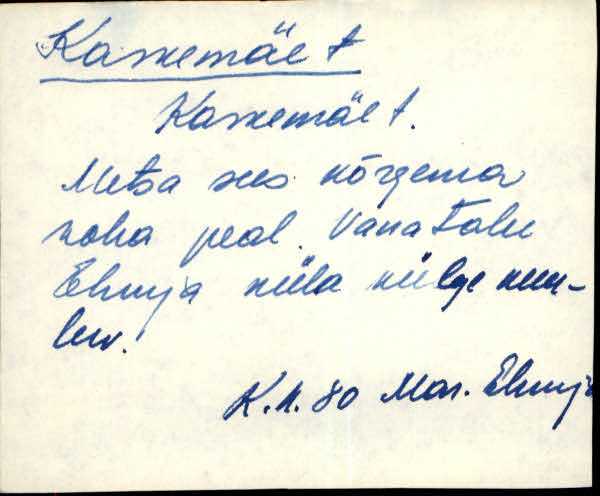 Kassemäe t
Kassemäe t.
Metsa sees kõrgema
koha peal. Vana talu
Ehmja küla külge kuu-
luv.
K.k. 80 Mar. Ehmja